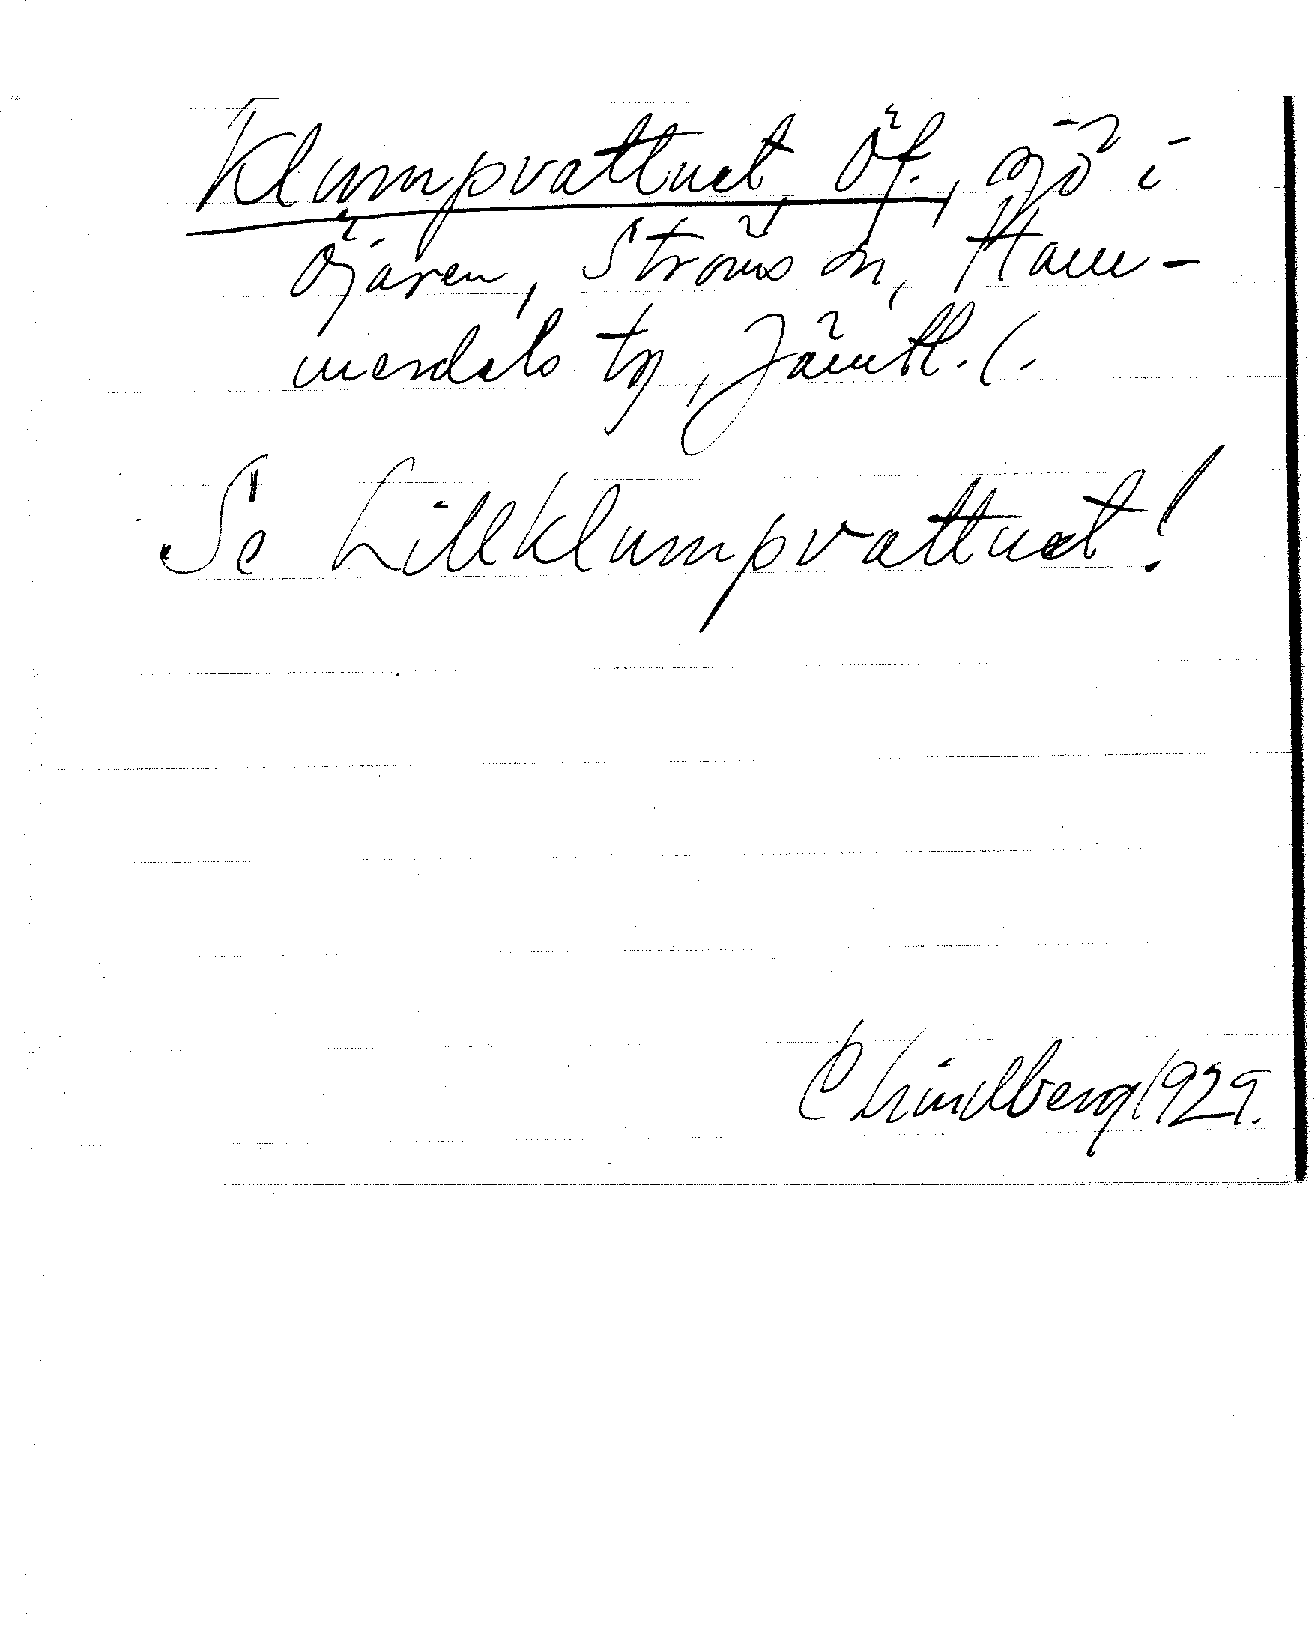 Klumpvattnet, Öf., sjö i
Öjaren, Ströms sn, Ham-
merdals tg, Jämtl. l.
Se Lillklumpvattnet!
C Lindberg 1929.